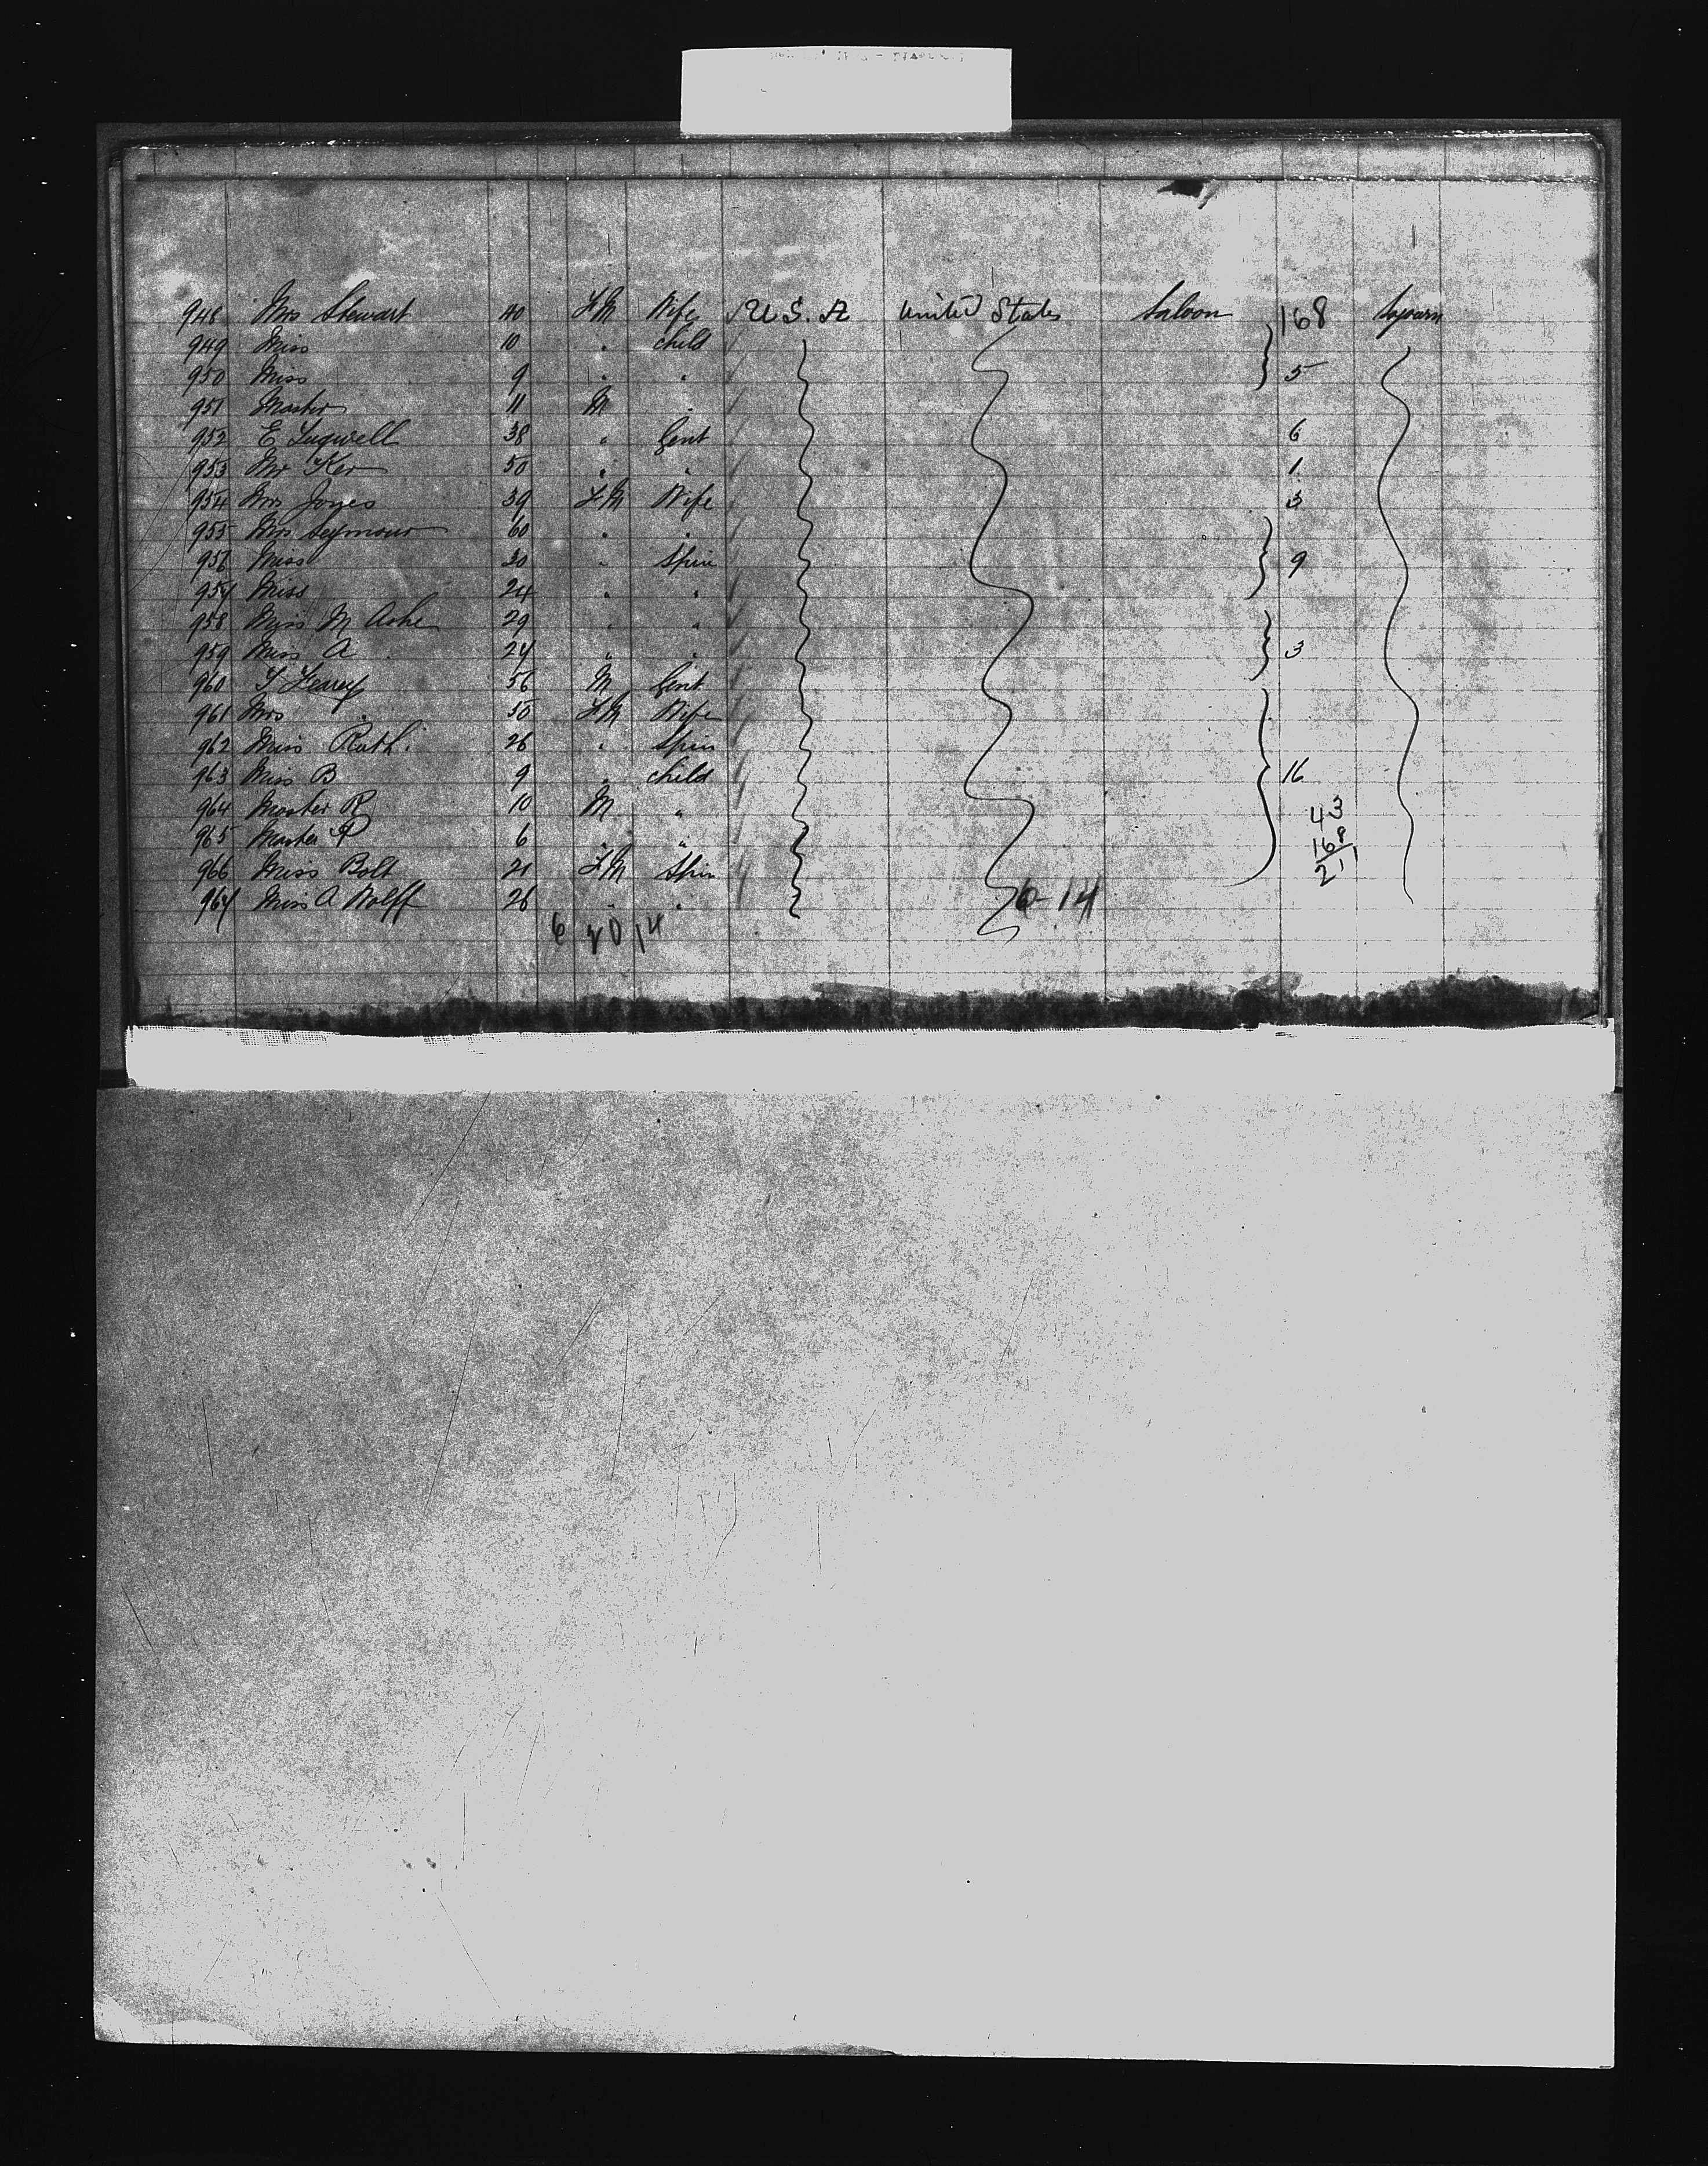 948 Mrs Stewart 40 FM Wife U.S.A United States Saloon 168 Sojourn
949 Miss 10 " child
950 Miss 9 " " 5
951 Master 11 M "
952 E Tugwell 38 " Gent 6
953 Mr Ker 50 " " 1
954 Mrs Jones 39 FM Wife 3
955 Mrs Seymour 60 " "
956 Miss 30 " Spin 9
957 Miss 24 " "
958 Miss M Ashe 29 " "
959 Miss A 27 " " 3
960 56 M Gent
961 Mrs 50 FM Wife
962 Miss Rath. 26 " Spin
963 Miss B 9 " child 16
964 Master R 10 M "
965 Master P 6 " "
966 Miss Bolt 21 FM Spin
967 Miss A Wolff 26 " "
6 20 14 6-14
43
168
211